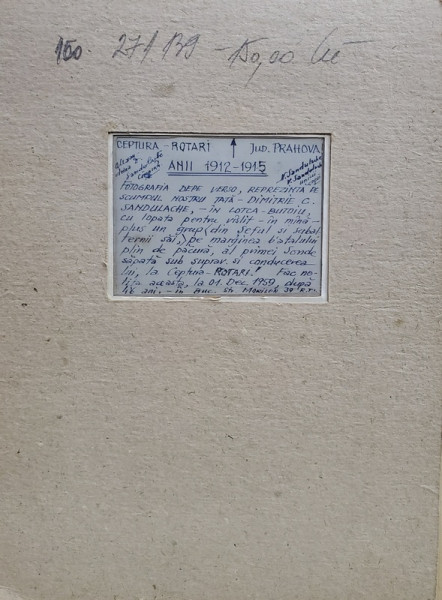 150. 271/139 - 150,00 lei
CEPTURA - ROTARI ↑ JUD. PRAHOVA
ANII 1912-1915
FOTOGRAFIA DEPE VERSO, REPREZINTA PE
SCUMPUL NOSTRU TATĂ - DIMITRIE C.
SANDULACHE, - ÎN LOTCA - BUTOIU,
CU lopata pentru vîslit - în mînă -
plus un grup (din Șeful și subal
ternii săi,) pe marginea batalului
plin de păcură, al primei Sonde
săpată sub suprav. și conducerea
lui, la Ceptura - ROTARI! Fac no-
tița aceasta, la 01. Dec. 1959 după
46 ani. - în Buc. Str.